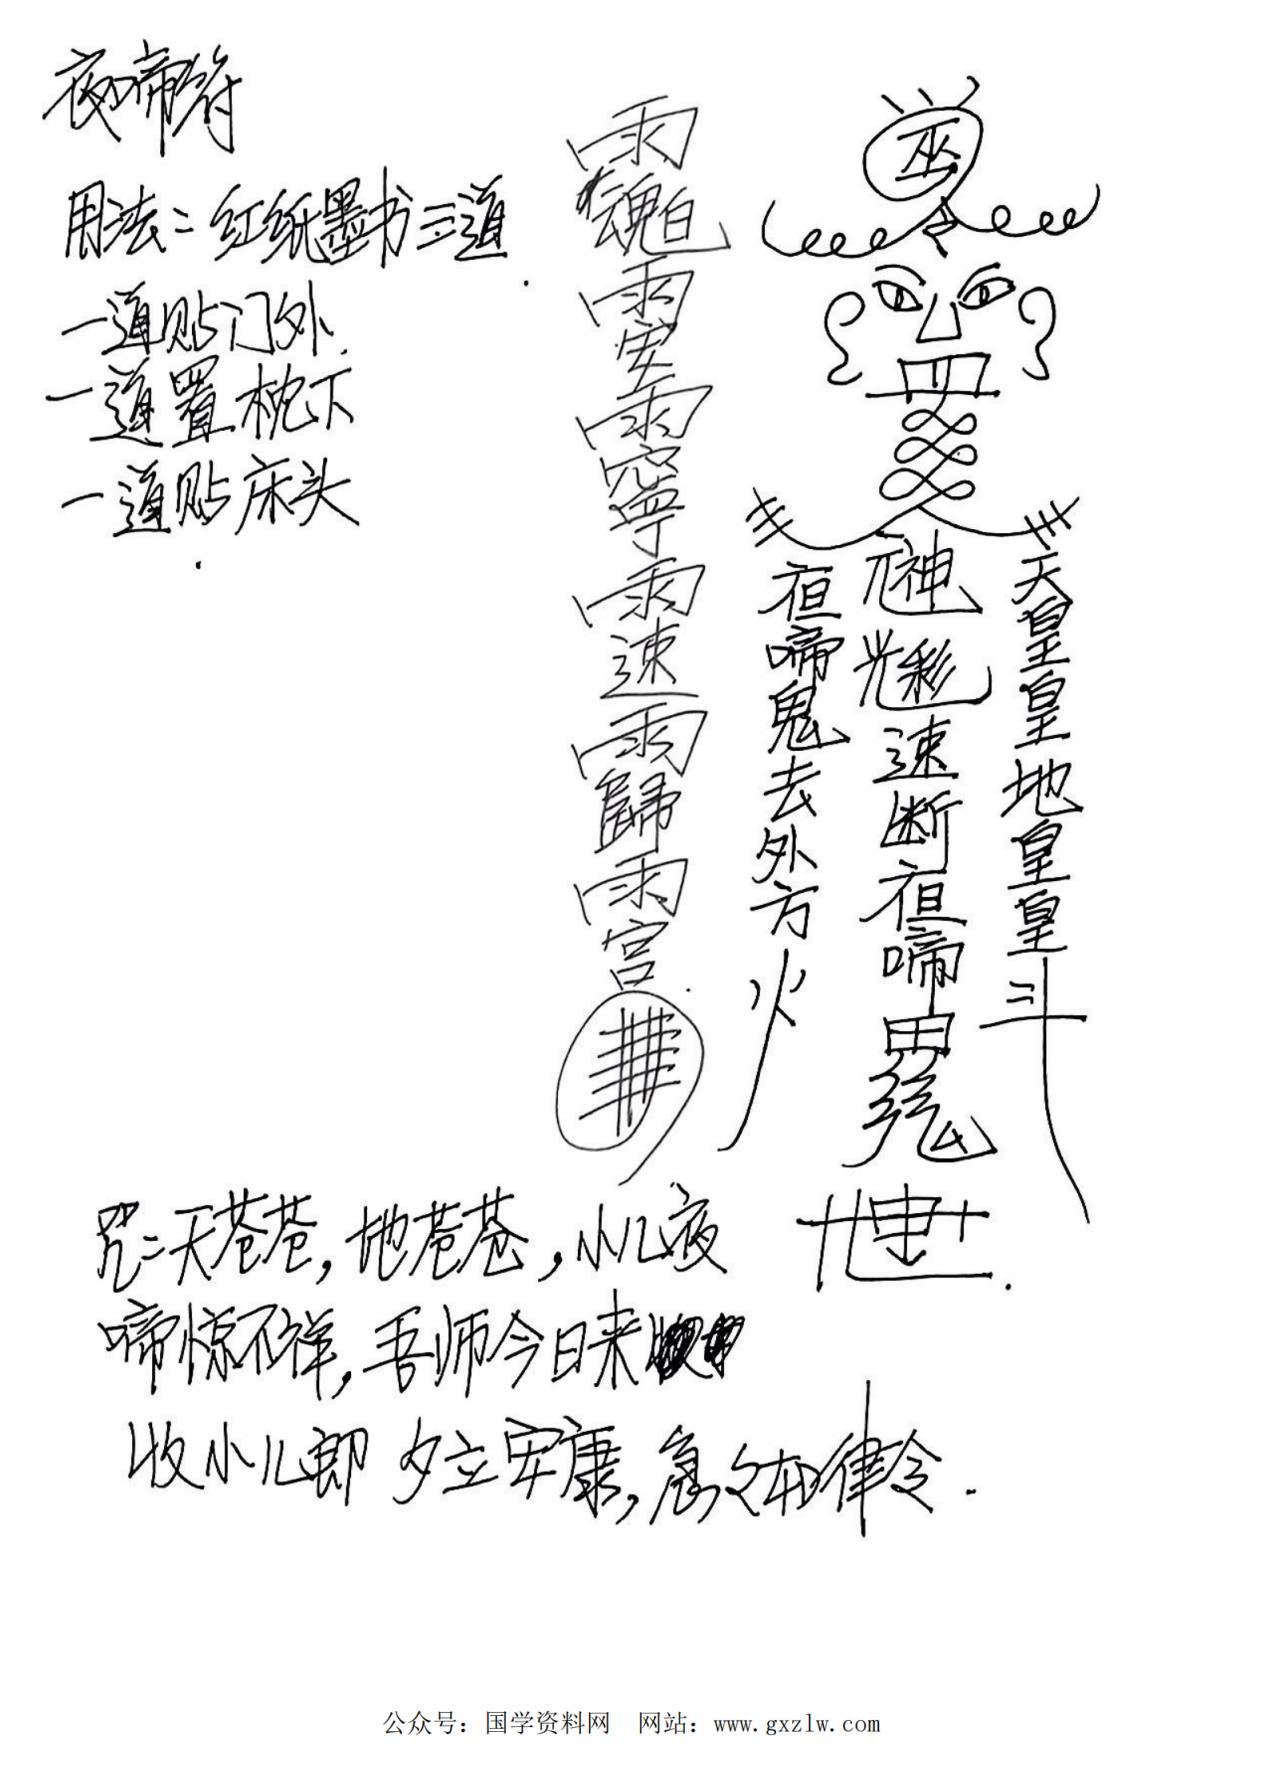 夜啼符
用法：红纸墨书三道.
一道贴门外.
一道置枕下
一道贴床头.
雨魂白雨安雨寧雨速雨歸雨宫
巫
夜啼鬼去外方火
神光彩速断夜啼鬼
天皇皇地皇皇斗
咒：天苍苍，地苍苍，小儿夜
啼惊不祥，吾师今日来
收小儿郎夕立安康，急々如律令.
公众号：国学资料网 网站：www.gxzlw.com